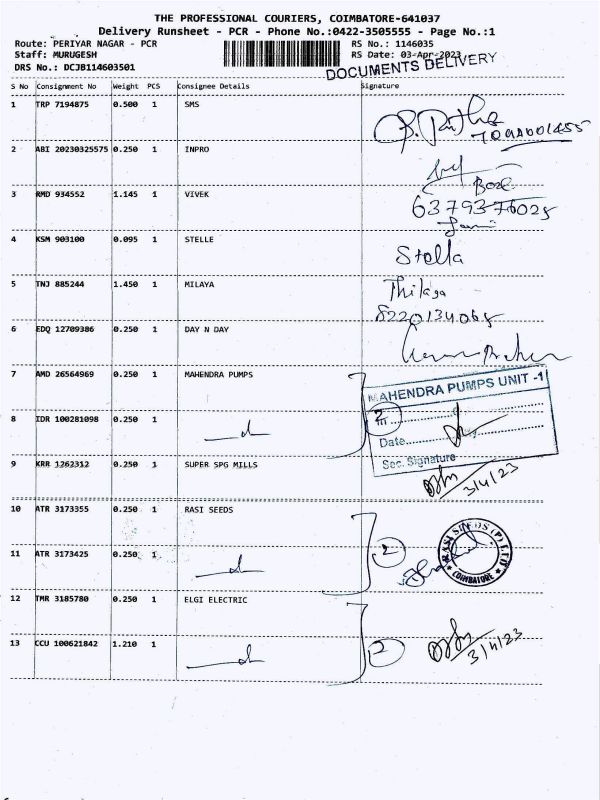 THE PROFESSIONAL COURIERS, COIMBATORE-641037
Delivery Runsheet - PCR - Phone No.:0422-3505555 - Page No.:1
Route: PERIYAR NAGAR - PCR RS No.: 1146035
Staff: MURUGESH RS Date: 03-Apr-2023
DRS No.: DCJB114603501 DOCUMENTS DELIVERY
S No Consignment No Weight PCS Consignee Details Signature
1 TRP 7194875 0.500 1 SMS
2 ABI 20230325575 0.250 1 INPRO
3 RMD 934552 1.145 1 VIVEK
6379376025
4 KSM 903100 0.095 1 STELLE
Stella
5 TNJ 885244 1.450 1 MILAYA Thilaga
8220134065
6 EDQ 12709386 0.250 1 DAY N DAY
7 AMD 26564969 0.250 1 MAHENDRA PUMPS
MAHENDRA PUMPS UNIT -1
8 IDR 100281098 0.250 1
Date
Sec. Signature
9 KRR 1262312 0.250 1 SUPER SPG MILLS
3/4/23
10 ATR 3173355 0.250 1 RASI SEEDS
RASI SEEDS (P) LTD
COIMBATORE
11 ATR 3173425 0.250 1
2
12 TMR 3185780 0.250 1 ELGI ELECTRIC
13 CCU 100621842 1.210 1
2 3/4/23